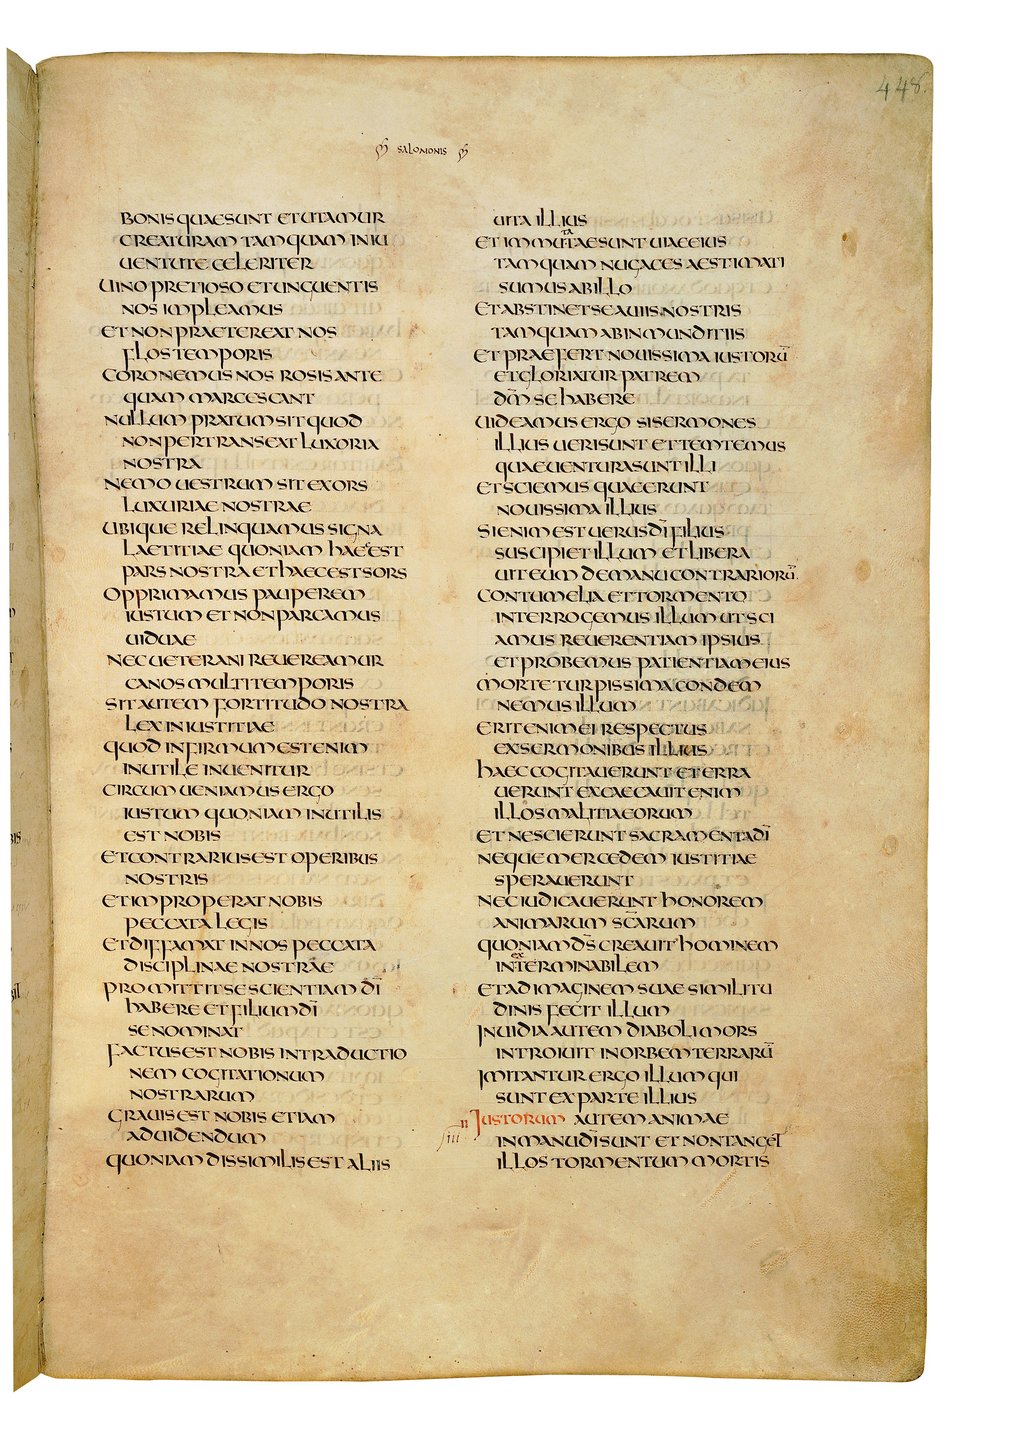 448
SALOMONIS
BONIS QUAE SUNT ET UTAMUR
CREATURAM TAMQUAM IN IU
UENTUTE CELERITER
UINO PRETIOSO ET UNGUENTIS
NOS IMPLEAMUS
ET NON PRAETEREAT NOS
FLOS TEMPORIS
CORONEMUS NOS ROSIS ANTE
QUAM MARCESCANT
NULLUM PRATUM SIT QUOD
NON PERTRANSEAT LUXORIA
NOSTRA
NEMO UESTRUM SIT EXORS
LUXURIAE NOSTRAE
UBIQUE RELINQUAMUS SIGNA
LAETITIAE QUONIAM HAEC EST
PARS NOSTRA ET HAEC EST SORS
OPPRIMAMUS PAUPEREM
IUSTUM ET NON PARCAMUS
UIDUAE
NEC UETERANI REUEREAMUR
CANOS MULTI TEMPORIS
SIT AUTEM FORTITUDO NOSTRA
LEX INIUSTITIAE
QUOD INFIRMUM EST ENIM
INUTILE INUENITUR
CIRCUMUENIAMUS ERGO
IUSTUM QUONIAM INUTILIS
EST NOBIS
ET CONTRARIUS EST OPERIBUS
NOSTRIS
ET IMPROPERAT NOBIS
PECCATA LEGIS
ET DIFFAMAT IN NOS PECCATA
DISCIPLINAE NOSTRAE
PROMITTIT SE SCIENTIAM DĪ
HABERE ET FILIUM DĪ
SE NOMINAT
FACTUS EST NOBIS IN TRADUCTIO
NEM COGITATIONUM
NOSTRARUM
GRAUIS EST NOBIS ETIAM
AD UIDENDUM
QUONIAM DISSIMILIS EST ALIIS
UITA ILLIUS
ET IMMUTATAE SUNT UIAE EIUS
TAMQUAM NUGACES AESTIMATI
SUMUS AB ILLO
ET ABSTINET SE A UIIS NOSTRIS
TAMQUAM AB INMUNDITIIS
ET PRAEFERT NOUISSIMA IUSTORŪ
ET GLORIATUR PATREM
DM̄ SE HABERE
UIDEAMUS ERGO SI SERMONES
ILLIUS UERI SUNT ET TEMTEMUS
QUAE UENTURA SUNT ILLI
ET SCIEMUS QUAE ERUNT
NOUISSIMA ILLIUS
SI ENIM EST UERUS DĪ FILIUS
SUSCIPIET ILLUM ET LIBERA
UIT EUM DE MANU CONTRARIORŪ
CONTUMELIA ET TORMENTO
INTERROGEMUS ILLUM UT SCI
AMUS REUERENTIAM IPSIUS
ET PROBEMUS PATIENTIAM EIUS
MORTE TURPISSIMA CONDEM
NEMUS ILLUM
ERIT ENIM EI RESPECTUS
EX SERMONIBUS ILLIUS
HAEC COGITAUERUNT ET ERRA
UERUNT EXCAECAUIT ENIM
ILLOS MALITIA EORUM
ET NESCIERUNT SACRAMENTA DĪ
NEQUE MERCEDEM IUSTITIAE
SPERAUERUNT
NEC IUDICAUERUNT HONOREM
ANIMARUM SC̄ARUM
QUONIAM DS̄ CREAUIT HOMINEM
INEXTERMINABILEM
ET AD IMAGINEM SUAE SIMILITU
DINIS FECIT ILLUM
INUIDIA AUTEM DIABOLI MORS
INTROIUIT IN ORBEM TERRARŪ
IMITANTUR ERGO ILLUM QUI
SUNT EX PARTE ILLIUS
II IUSTORUM AUTEM ANIMAE
IN MANU DĪ SUNT ET NON TANGET
ILLOS TORMENTUM MORTIS